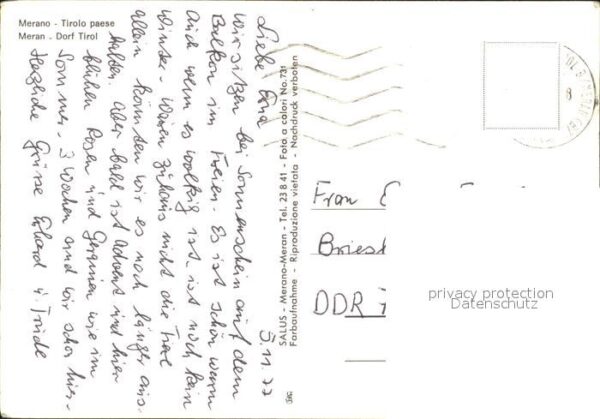 Merano - Tirolo paese
Meran - Dorf Tirol
5.11.77
Liebe
Wir sitzen bei Sonnenschein auf dem
Balkon im Freien. Es ist schön warm
Auch wenn es wolkig ist, ist noch kein
Winter. Wären zuhaus nicht die
allein könnten wir es noch länger aus-
halten. Aber bald ist Advent und hier
blühen Rosen und Geranien wie im
Sommer. 3 Wochen sind wir schon hier.
Herzliche Grüsse Erhard u. Friede
SALUS - Merano-Meran - Tel. 23 8 41 - Foto a colori No. 731
Farbaufnahme - Riproduzione vietata - Nachdruck verboten
Frau
Briesk
DDR
privacy protection
Datenschutz